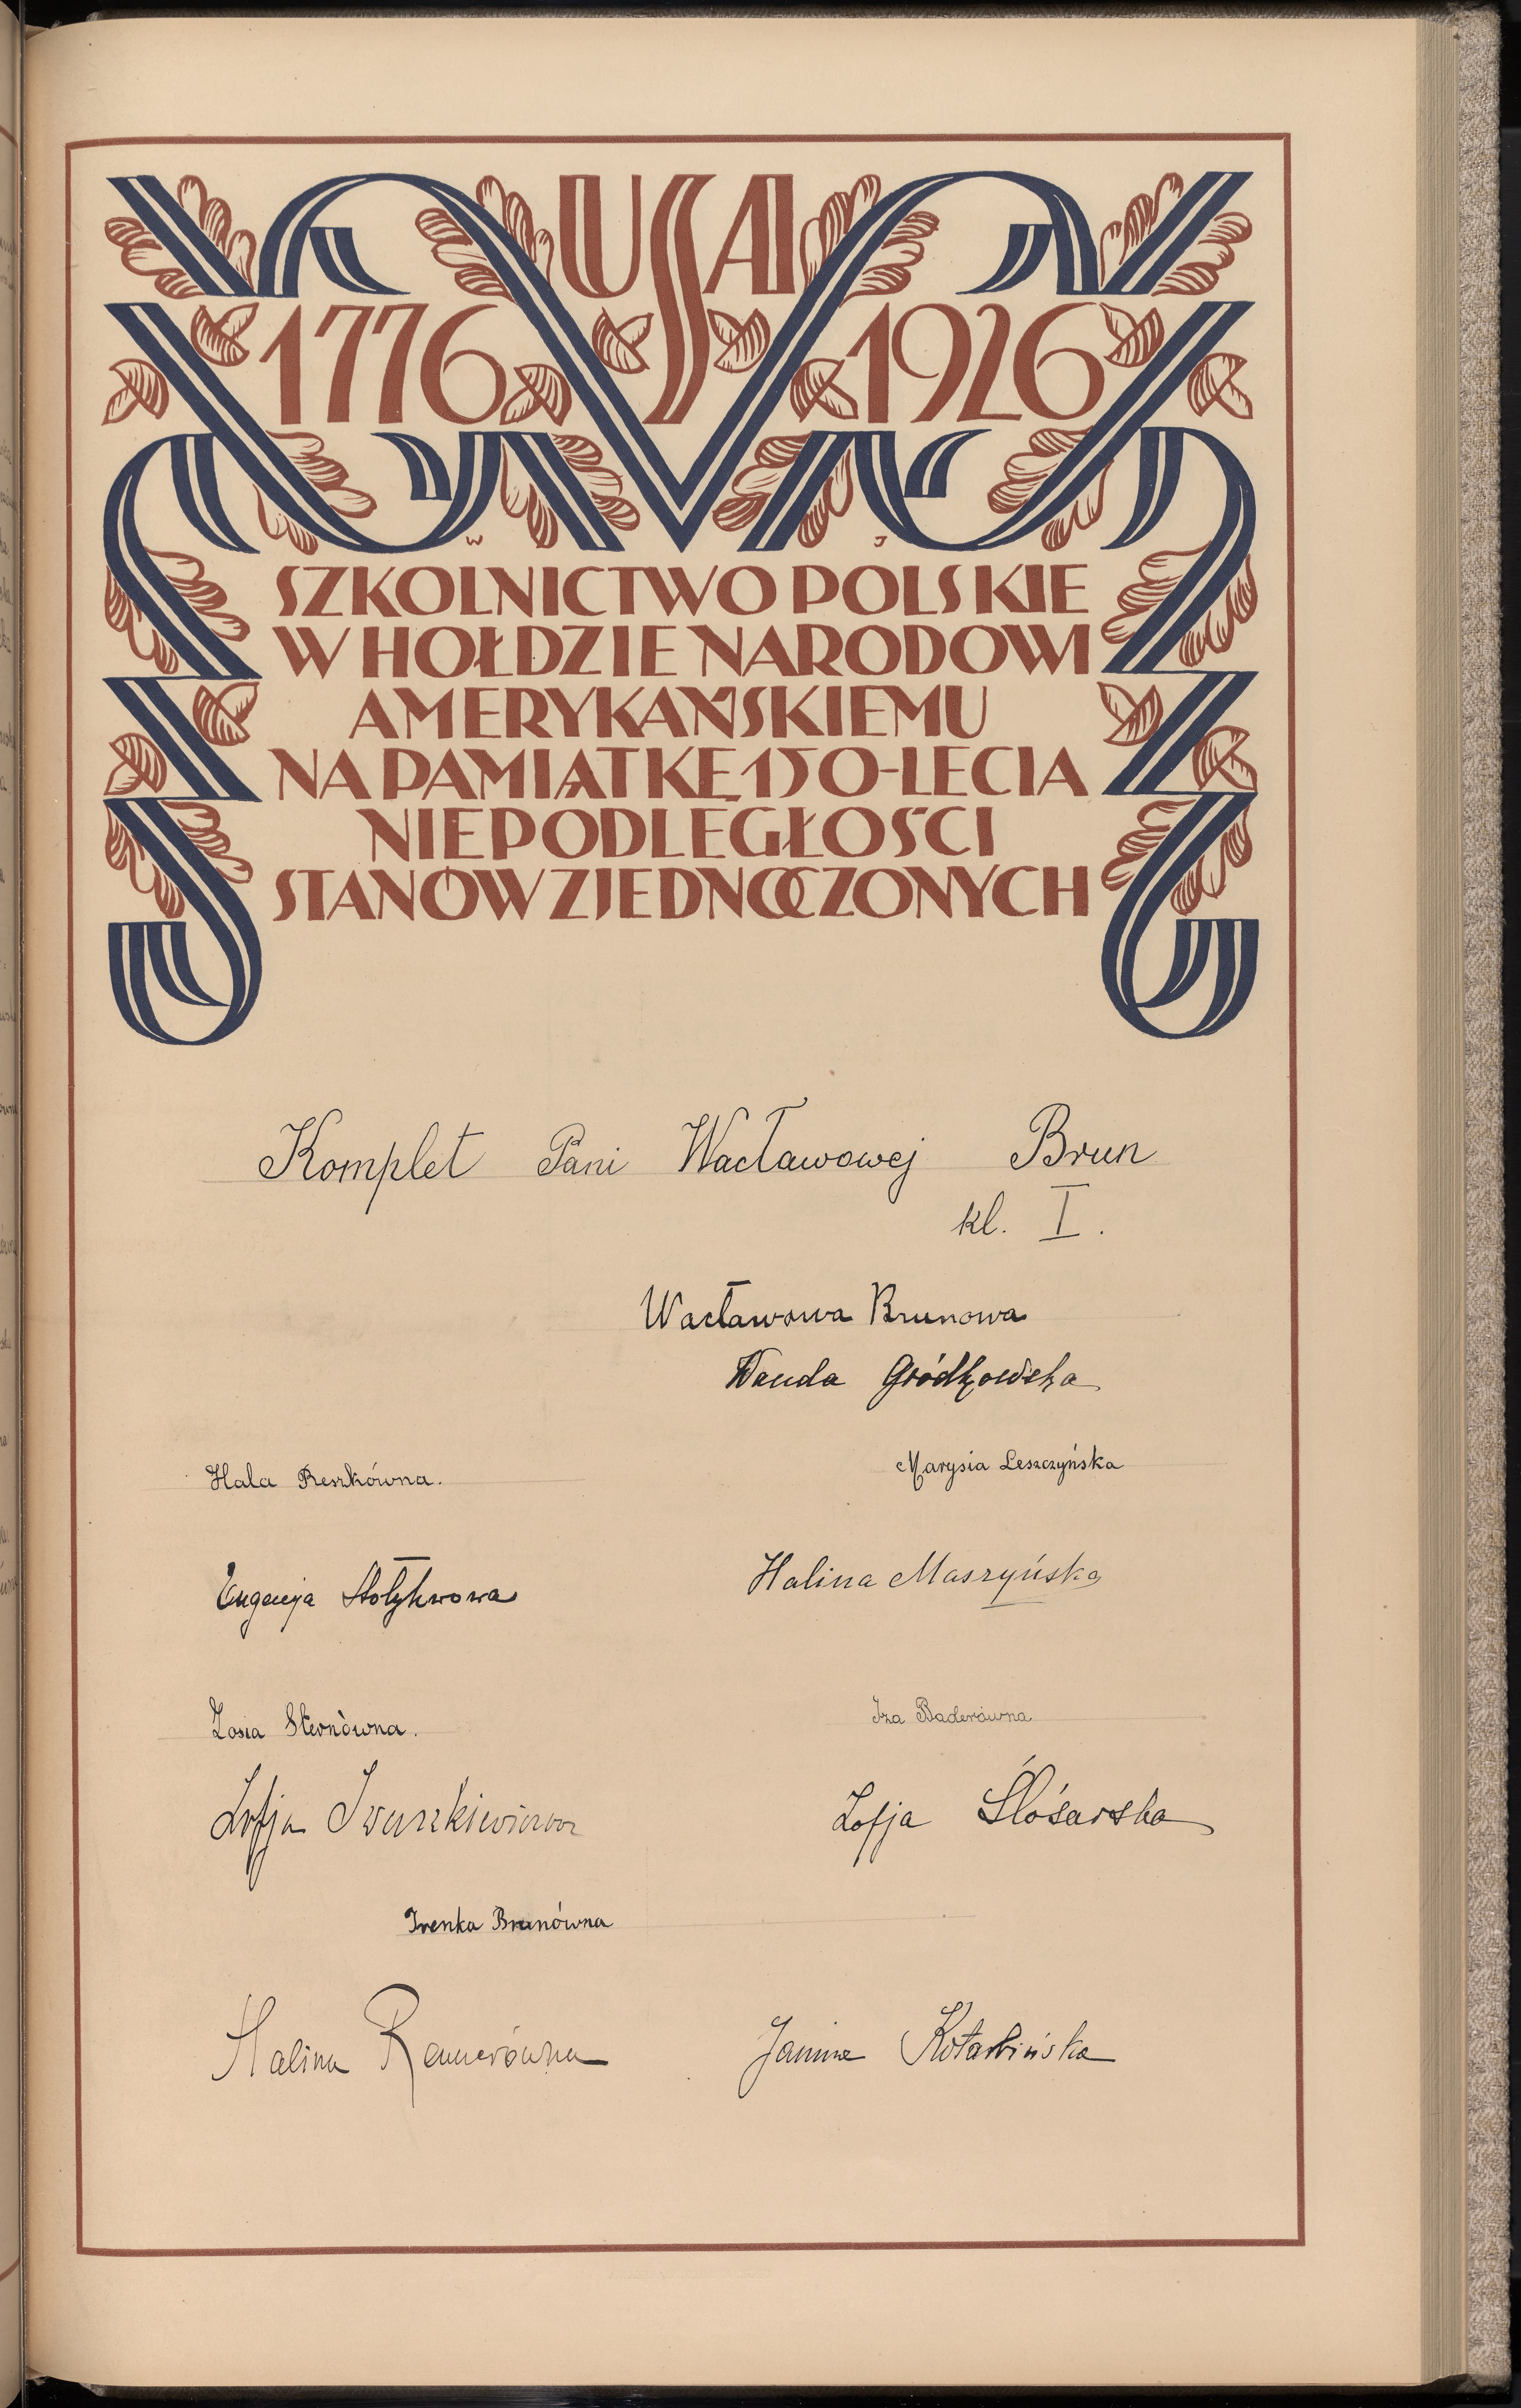 USA
1776 1926
W J
SZKOLNICTWO POLSKIE
W HOŁDZIE NARODOWI
AMERYKAŃSKIEMU
NA PAMIĄTKĘ 150-LECIA
NIEPODLEGŁOŚCI
STANÓW ZJEDNOCZONYCH
Komplet Pani Wacławowej Brun
kl. I.
Wacławowa Brunowa
Wanda Gródkowska
Hala Reszkówna.
Marysia Leszczyńska
Eugenja Stołyhwowa
Halina Maszyńska
Zosia Sternówna.
Iza Baderówna
Zofja Iwaszkiewiczowa
Zofja Ślósarska
Irenka Brunówna
Halina
Janina Kotarbińska